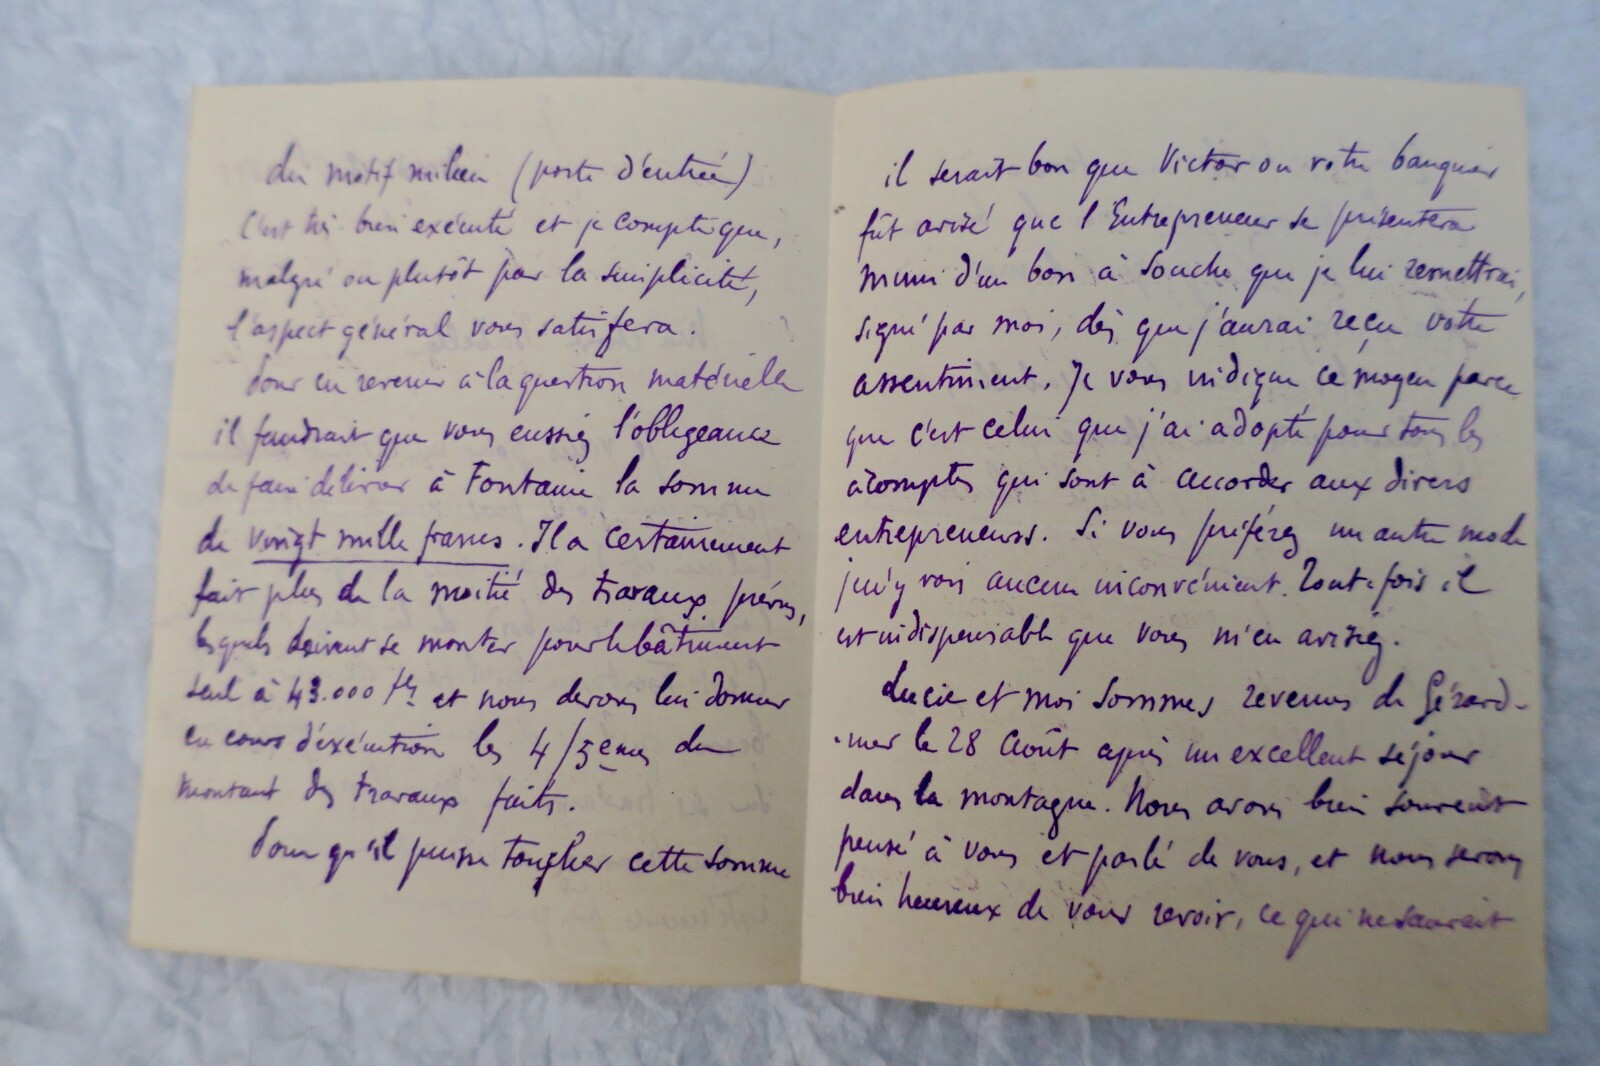 du motif milieu (porte d'entrée)
C'est très bien exécuté et je compte que,
malgré ou plutôt par la simplicité,
l'aspect général vous satisfera.
Pour en revenir à la question matérielle
il faudrait que vous eussiez l'obligeance
de faire délivrer à Fontaine la somme
de vingt mille francs. Il a certainement
fait plus de la moitié des travaux prévus,
lesquels doivent se monter pour le bâtiment
seul à 43.000 frs et nous devons lui donner
en cours d'éxécution les 4/5emes du
montant des travaux faits.
Pour qu'il puisse toucher cette somme
il serait bon que Victor ou votre banquier
fût avisé que l'Entrepreneur se présentera
muni d'un bon à souche que je lui remettrai,
signé par moi, dès que j'aurai reçu votre
assentiment. Je vous indique ce moyen parce
que c'est celui que j'ai adopté pour tous les
acomptes qui sont à accorder aux divers
entrepreneurs. Si vous préférez un autre mode
je n'y vois aucun inconvénient. Toute-fois il
est indispensable que vous m'en avisiez.
Lucie et moi sommes revenus de Gérard-
-mer le 28 Août après un excellent séjour
dans la montagne. Nous avons bien souvent
pensé à vous et parlé de vous, et nous serons
bien heureux de vous revoir, ce qui ne saurait